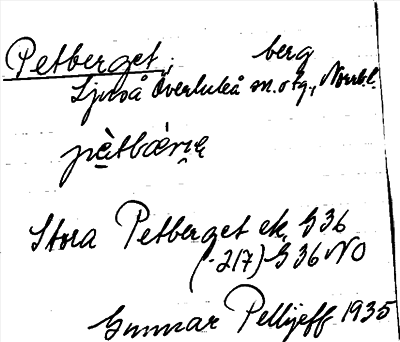 Petberget, berg
Ljuså Överluleå sn. o tg., Norrb.l.
Stora Petberget ek. G36
(-217) G36 NO
Gunnar Pellijeff 1935